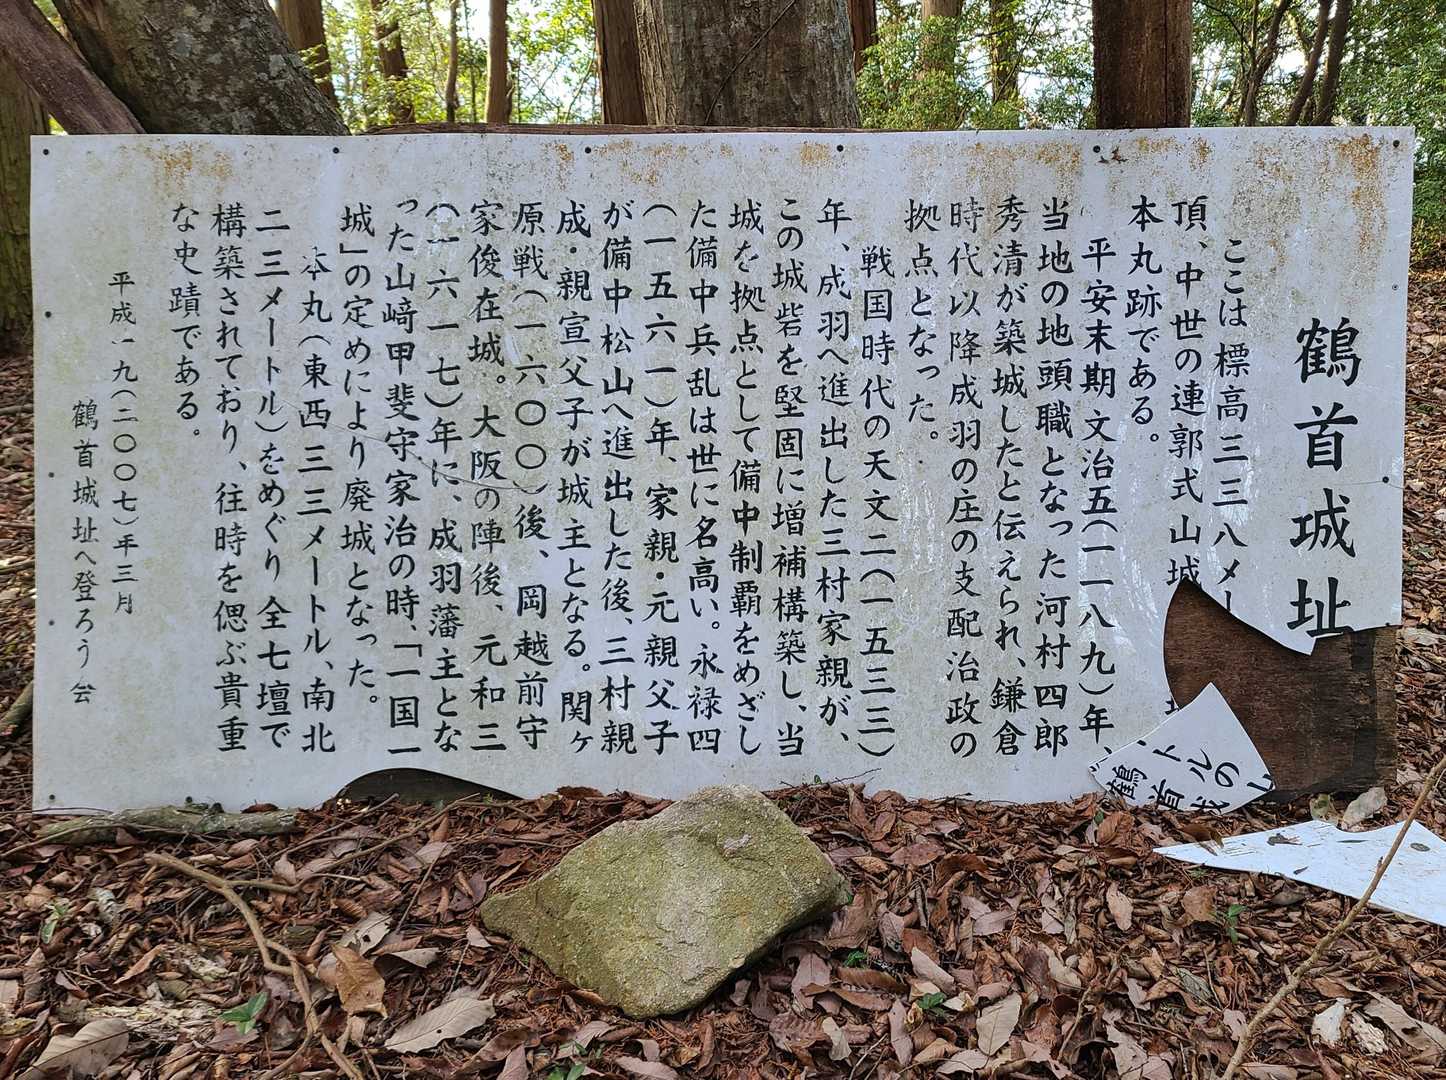 鶴首城址
ここは標高三三八メー
頂、中世の連郭式山城
本丸跡である。
平安末期文治五(一一八九)年、
当地の地頭職となった河村四郎
秀清が築城したと伝えられ、鎌倉
時代以降成羽の庄の支配治政の
拠点となった。
戦国時代の天文二(一五三三)
年、成羽へ進出した三村家親が、
この城砦を堅固に増補構築し、当
城を拠点として備中制覇をめざし
た備中兵乱は世に名高い。永禄四
(一五六一)年、家親・元親父子
が備中松山へ進出した後、三村親
成・親宣父子が城主となる。関ヶ
原戦(一六〇〇)後、岡越前守
家俊在城。大阪の陣後、元和三
(一六一七)年に、成羽藩主とな
った山﨑甲斐守家治の時、「一国一
城」の定めにより廃城となった。
本丸(東西三三メートル、南北
二三メートル)をめぐり全七壇で
構築されており、往時を偲ぶ貴重
な史蹟である。
平成一九(二〇〇七)年三月
鶴首城址へ登ろう会
トルの
鶴首城